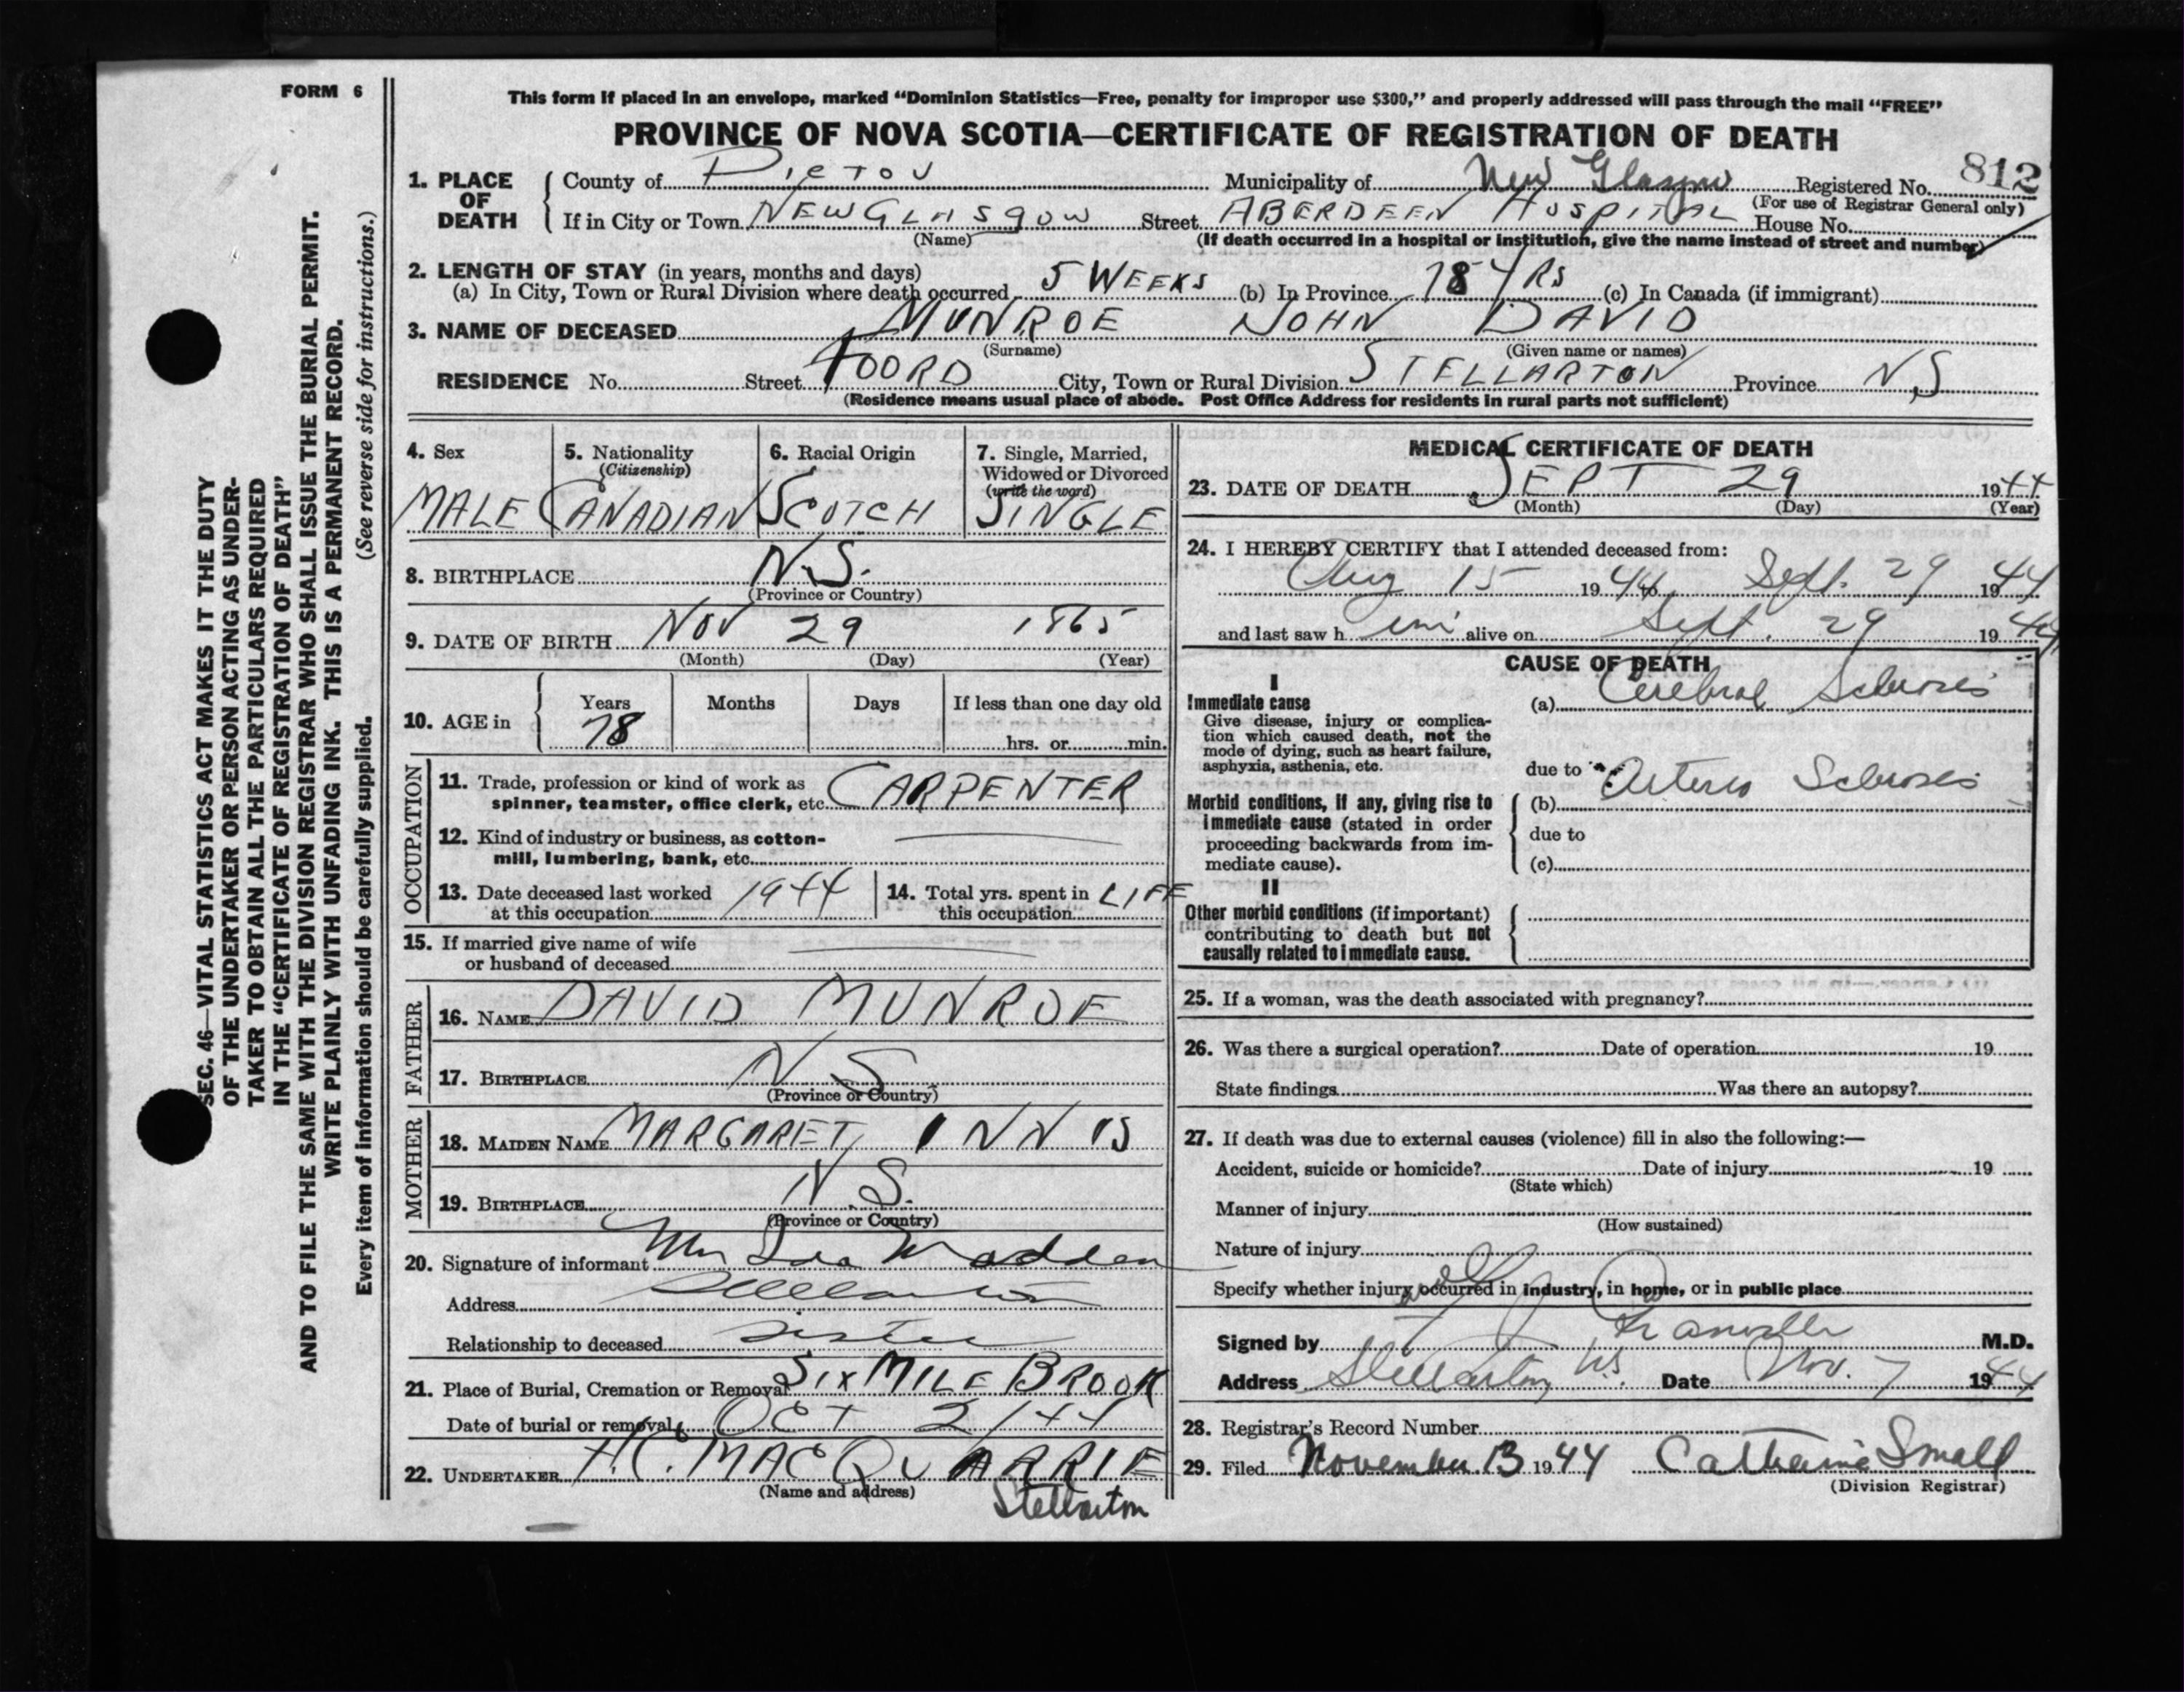 FORM 6
This form if placed in an envelope, marked “Dominion Statistics—Free, penalty for improper use $300,” and properly addressed will pass through the mail “FREE”
PROVINCE OF NOVA SCOTIA—CERTIFICATE OF REGISTRATION OF DEATH
812
1. PLACE OF DEATH
County of PICTOU Municipality of New Glasgow Registered No.
(For use of Registrar General only)
If in City or Town NEW GLASGOW Street ABERDEEN HOSPITAL House No.
(Name) (If death occurred in a hospital or institution, give the name instead of street and number)
2. LENGTH OF STAY (in years, months and days)
(a) In City, Town or Rural Division where death occurred 5 WEEKS (b) In Province 78 YRS (c) In Canada (if immigrant)
3. NAME OF DECEASED MUNROE JOHN DAVID
(Surname) (Given name or names)
RESIDENCE No. Street FOORD City, Town or Rural Division STELLARTON Province N.S
(Residence means usual place of abode. Post Office Address for residents in rural parts not sufficient)
4. Sex
MALE
5. Nationality
(Citizenship)
CANADIAN
6. Racial Origin
SCOTCH
7. Single, Married,
Widowed or Divorced
(write the word)
SINGLE
8. BIRTHPLACE N.S.
(Province or Country)
9. DATE OF BIRTH NOV 29 1865
(Month) (Day) (Year)
10. AGE in Years Months Days If less than one day old
78 hrs. or min.
OCCUPATION
11. Trade, profession or kind of work as
spinner, teamster, office clerk, etc. CARPENTER
12. Kind of industry or business, as cotton-
mill, lumbering, bank, etc.
13. Date deceased last worked
at this occupation 1944
14. Total yrs. spent in
this occupation LIFE
15. If married give name of wife
or husband of deceased
FATHER
16. NAME DAVID MUNROE
17. BIRTHPLACE N S
(Province or Country)
MOTHER
18. MAIDEN NAME MARGARET INNIS
19. BIRTHPLACE N.S.
(Province or Country)
20. Signature of informant Madden
Address Stellarton
Relationship to deceased sister
21. Place of Burial, Cremation or Removal SIX MILE BROOK
Date of burial or removal OCT 2/44
22. UNDERTAKER H.C. MACQUARRIE
(Name and address) Stellarton
MEDICAL CERTIFICATE OF DEATH
23. DATE OF DEATH SEPT 29 1944
(Month) (Day) (Year)
24. I HEREBY CERTIFY that I attended deceased from:
Aug 15 1944 to Sept. 29 1944
and last saw h im alive on Sept. 29 1944
CAUSE OF DEATH
I
Immediate cause
Give disease, injury or complica-
tion which caused death, not the
mode of dying, such as heart failure,
asphyxia, asthenia, etc.
(a) Cerebral Sclerosis
due to
Morbid conditions, if any, giving rise to
immediate cause (stated in order
proceeding backwards from im-
mediate cause).
(b) Arterio Sclerosis
due to
(c)
II
Other morbid conditions (if important)
contributing to death but not
causally related to immediate cause.
25. If a woman, was the death associated with pregnancy?
26. Was there a surgical operation? Date of operation 19
State findings Was there an autopsy?
27. If death was due to external causes (violence) fill in also the following:—
Accident, suicide or homicide? Date of injury 19
(State which)
Manner of injury
(How sustained)
Nature of injury
Specify whether injury occurred in industry, in home, or in public place
Signed by M.D.
Address Stellarton N.S. Date Nov. 7 1944
28. Registrar's Record Number
29. Filed November 13 1944 Catherine Small
(Division Registrar)
SEC. 46—VITAL STATISTICS ACT MAKES IT THE DUTY
OF THE UNDERTAKER OR PERSON ACTING AS UNDER-
TAKER TO OBTAIN ALL THE PARTICULARS REQUIRED
IN THE “CERTIFICATE OF REGISTRATION OF DEATH”
AND TO FILE THE SAME WITH THE DIVISION REGISTRAR WHO SHALL ISSUE THE BURIAL PERMIT.
WRITE PLAINLY WITH UNFADING INK. THIS IS A PERMANENT RECORD.
Every item of information should be carefully supplied. (See reverse side for instructions.)